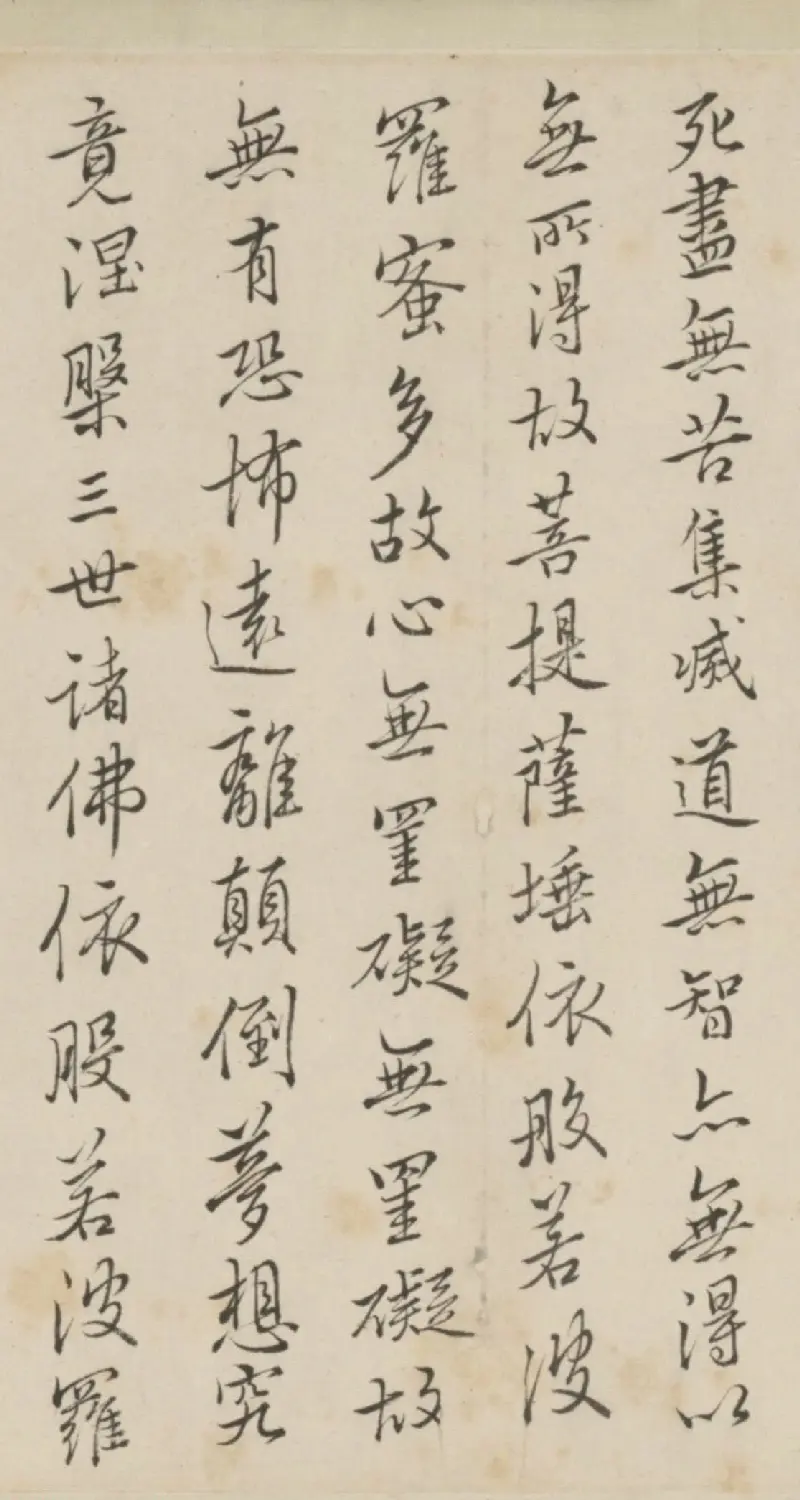 死盡無苦集滅道無智亦無得以
無所得故菩提薩埵依般若波
羅蜜多故心無罣礙無罣礙故
無有恐怖遠離顛倒夢想究
竟涅槃三世諸佛依般若波羅